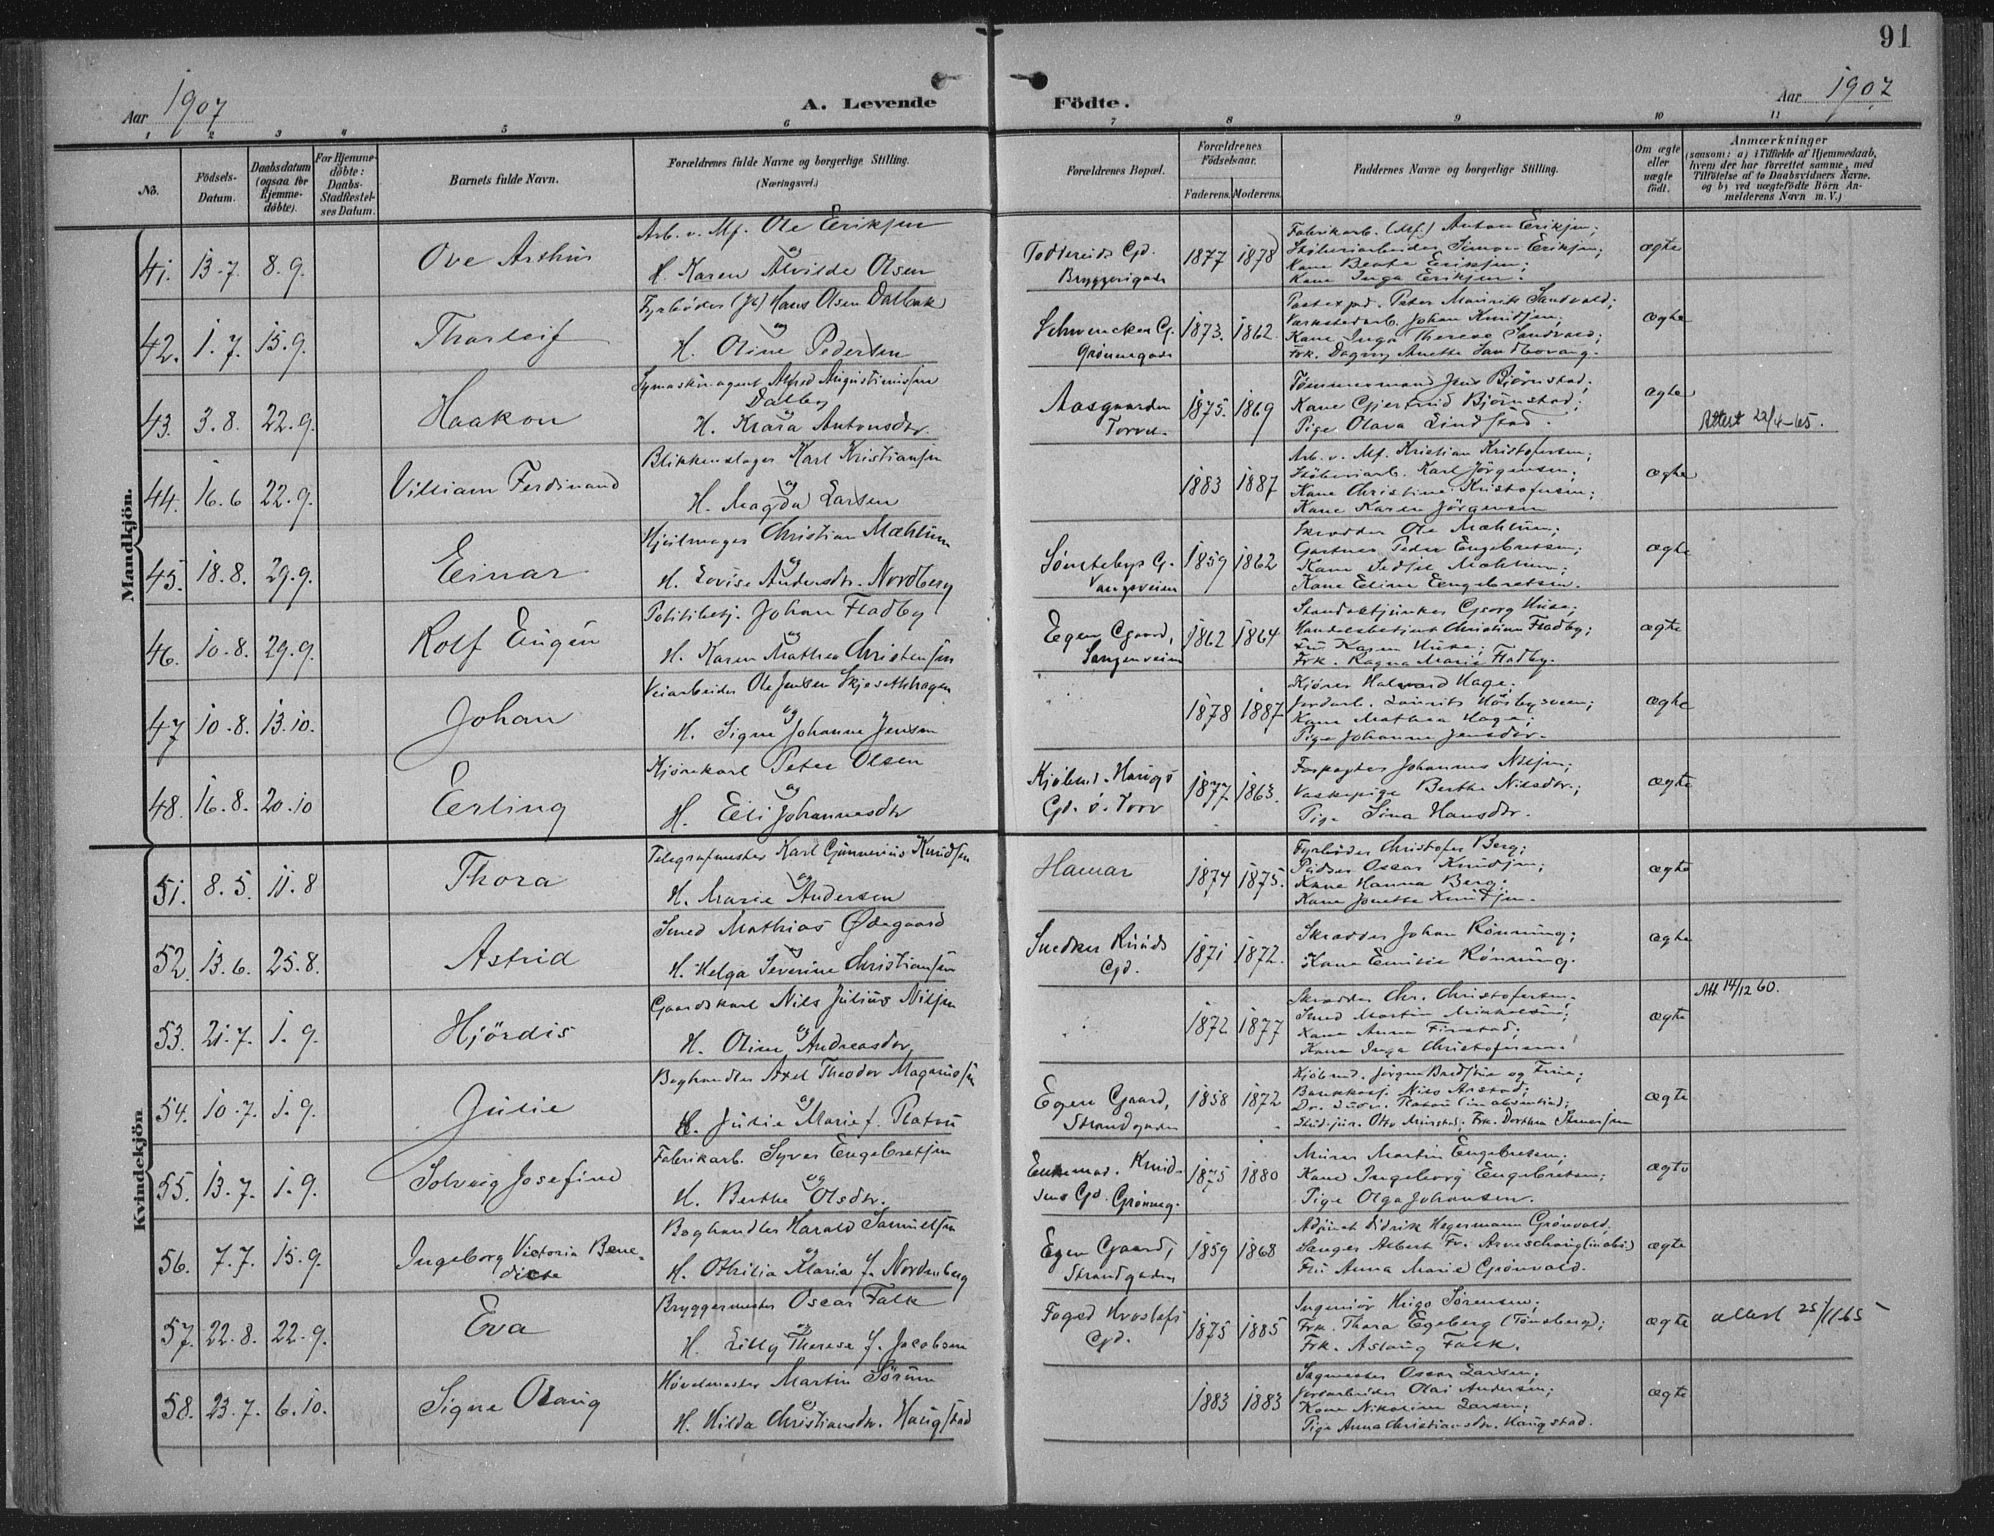 91
Aar 1907
A. Levende
Födte.
Aar 1907
1 2 3 4 5 6 7 8 9 10 11
No.
Födsels-Datum.
Daabsdatum (ogsaa for Hjemmedöbte).
For Hjemmedöbte: Daabs-Stadfæstelses Datum.
Barnets fulde Navn.
Forældrenes fulde Navne og borgerlige Stilling. (Næringsvei.)
Forældrenes Bopæl.
Forældrenes Födselsaar.
Faderens. Moderens.
Faddernes Navne og borgerlige Stilling.
Om ægte eller uægte födt.
Anmærkninger
(saasom: a) i Tilfælde af Hjemmedaab, hvem der har forrettet samme, med Tilföielse af to Daabsvidners Navne, og b) ved uægtefödte Börn Anmelderens Navn m. V.)
Mandkjön.
41. 13.7. 8.9. Ove Arthur
Arb. v. Mf. Ole Eriksen
og
H. Karen Alvilde Olsen
Bryggerigade
1877 1878
Fabrikarb. (Mf.) Anton Eriksen;
Skiberiarbeider Simon Eriksen;
Kone Beate Eriksen;
Kone Inga Eriksen.
ægte
42. 1.7. 15.9. Thorleif
Fyrbøder Hans Olsen Dalbak
og
H. Oline Pedersen
Schwenckes G.
Grønnegade
1873. 1862.
Postexped. Peter Mauritz Sandvold;
Værkstedarb. Johan Knudsen;
Kone Inga Therese Sandvold;
Frk. Dagny Anette
ægte
43. 3.8. 22.9. Haakon
Symaskinagent Alfred Augustinussen
Dalby
og
H. Klara Antonsdtr.
Aasgaarden
Torvet.
1875. 1869
Tømmermand Jens Bjørnstad;
Kone Gjertrud Bjørnstad;
Pige Olava Lindstad.
ægte
Attest 22/4-65.
44. 16.6 22.9. Villiam Ferdinand
Blikkenslager Karl Kristiansen
og
H. Magda Larsen
1883 1887
Arb. v. Mf. Kristian Kristofersen;
Karl Jørgensen;
Kone Christine Kristofersen;
Kone Karen Jørgensen
ægte
45. 18.8. 29.9. Einar
Hjulmager Christian Mæhlum
og
H. Lovise Andersdtr. Nordberg
Vangsveien
1859 1862
Skrædder Ole Mæhlum;
Gartner Peder Engebretsen;
Kone Sidsel Mæhlum;
Kone Eline Engebretsen.
ægte
46. 10.8. 29.9. Rolf Eugén
Politibetj. Johan Fladby
og
H. Karen Mathea Christensen
Egen Gaard,
1862 1864
Georg Huse;
Handelsbetjent Christian Fladby;
Fru Karen Huse;
Frk. Ragna Marie Fladby.
ægte
47 10.8. 13.10. Johan
Veiarbeider Ole Jensen Skjesethhagen
og
H. Signe Johanne Jensen
1878 1887
Kjører Halvard Hage;
Kone Mathea Hage;
Pige Johanne Jensdtr.
ægte
48. 16.8. 20.10 Erling
Kjørekarl Peter Olsen
og
H. Eli Johannesdtr
Kjøbmd. Haugs
Gd. ö. Torv
1877. 1863.
Forpagter Johannes Nilsen;
Vaskepige Berthe Nilsdtr.;
Pige Sina Hansdtr.
ægte
Kvindekjön
51. 8.5. 11.8 Thora
Telegrafmester Karl Gunnerius Knudsen
og
H. Marie Andersen
Hamar
1874 1875.
Fyrbøder Christofer Berg;
Pudser Oscar Knudsen;
Kone Hanna Berg;
Kone Jonette Knudsen.
ægte
52. 13.6. 25.8. Astrid
Smed Mathias Ødegaard
og
H. Helga Severine Christiansen
Snedker Ruuds
Gd.
1871 1872.
Skrædder Johan Rønning;
Kone Emilie Rønning.
ægte
53. 21.7. 1.9. Hjördis
Gaardskarl Nils Julius Nilsen
og
H. Oline Andreasdtr.
1872 1877
Skrædder Chr. Christofersen;
Smed Martin Mikkelsen;
Kone Anna Finstad;
Kone Inga Christofersen.
ægte
Att. 14/12 60.
54. 10.7. 1.9. Julie
Boghandler Axel Theodor Magnussen
og
H. Julie Marie f. Platou
Egen Gaard,
Strandgaden
1858 1872
Kjøbmd. Jørgen og Frue;
Bankkass. Nils Aastad;
Platou (in absentia);
Stud. jur. Otto Mjørstad; Frk. Dorthea
ægte
55. 13.7. 1.9. Solveig Josefine
Fabrikarb. Syver Engebretsen
og
H. Berthe Olsdtr.
Enkemad. Knudsens Gd. Grønneg.
1875 1880
Murer Martin Engebretsen;
Kone Ingeborg Engebretsen;
Pige Olga Johansen.
ægte
56. 7.7. 15.9. Ingeborg Victoria Benedicte
Boghandler Harald Samuelsen
og
H. Othilia Maria f. Nordenberg
Egen Gaard,
Strandgaden
1859 1868
Adjunct Didrik Hegermann Grønvold,
Sanger Albert Fr. Arveschoug (in abs.)
Fru Anna Marie Grønvold.
ægte
57. 22.8. 22.9. Eva
Bryggermester Oscar Falk
og
H. Lilly Therese f. Jacobsen
Foged Hroslefs
Gd.
1875 1885
Ingeniör Hugo Sørensen;
Frk. Thora Egeberg (Tønsberg);
Frk. Aslaug Falk.
ægte
attest 25/11 65
58. 23.7. 6.10. Signe Olaug
Høvelmester Martin Sörum
og
H. Hilda Christiansdtr. Haugstad
1883 1883
Sagmester Oscar Larsen;
Jordarbeider Olai Andersen;
Kone Nikoline Larsen;
Pige Anna Christiansdtr. Haugstad.
ægte